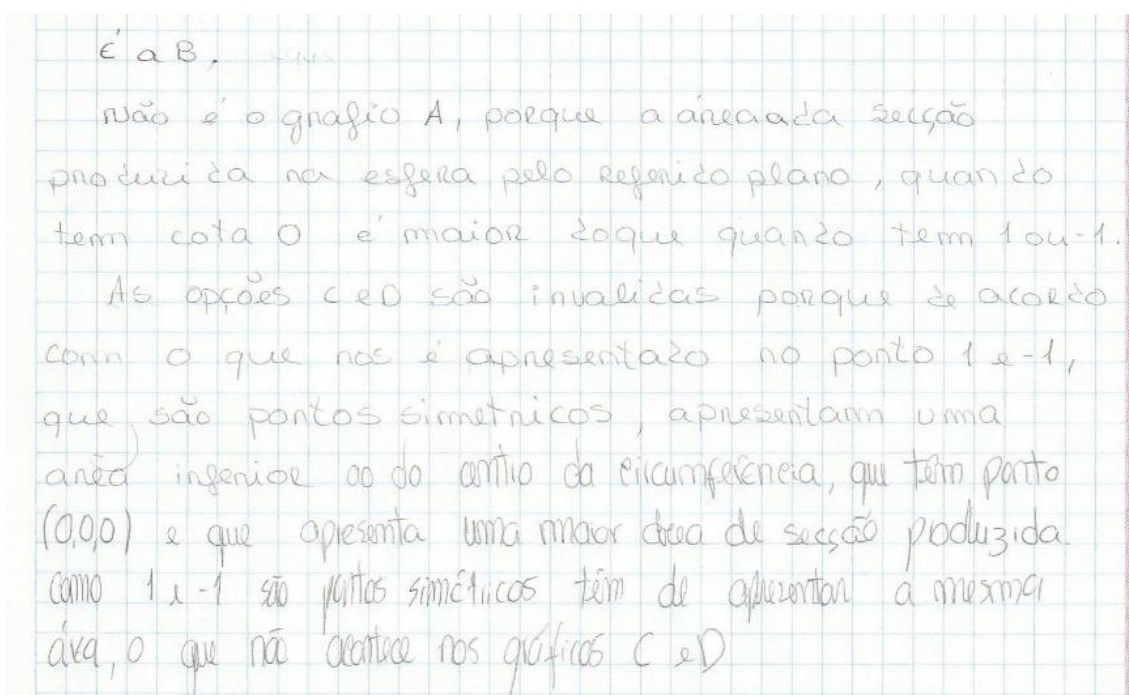 É a B.
Não é o grafio A, porque a áreaada secção
produzida na esfera pelo referido plano, quando
tem cota 0 é maior doque quando tem 1 ou -1.
As opções C e D são invalidas porque de acordo
com o que nos é apresentado no ponto 1 e -1,
que são pontos simetricos, apresentam uma
aréa inferior ao do centro da circumferência, que têm ponto
(0,0,0) e que apresenta uma maior área de secção produzida.
como 1 e -1 são pontos simétricos têm de aprezentar a mesma
área, o que não acontece nos gráficos C e D